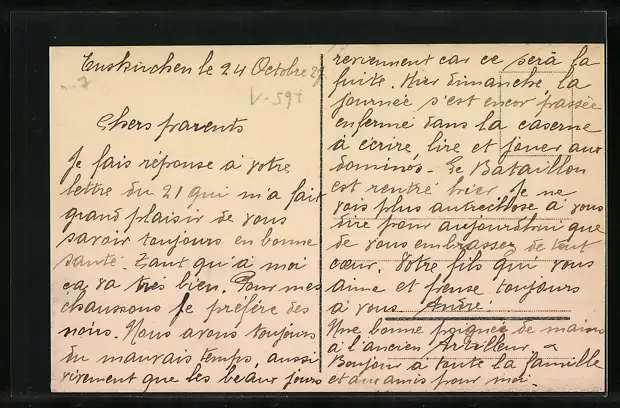 Euskirchen le 24 Octobre 27
V-597
Chers parents
Je fais réponse à votre
lettre du 21 qui m'a fait
grand plaisir de vous
savoir toujours en bonne
santé. Tant qu'à moi
ça va très bien. Pour mes
chaussons je préfère des
noirs. Nous avons toujours
du mauvais temps, aussi
vivement que les beaux jours
reviennent car ce sera la
fuite. Hier dimanche, la
journée s'est encor passée
enfermé dans la caserne
à écrire, lire et jouer aux
dominos. Le Bataillon
est rentré hier. Je ne
vois plus autrechose à vous
dire pour aujourd'hui que
de vous embrasser de tout
cœur. Votre fils qui vous
aime et pense toujours
à vous André.
Une bonne poignée de mains
à l'ancien Artilleur
Bonjour à toute la famille
et aux amis pour moi.